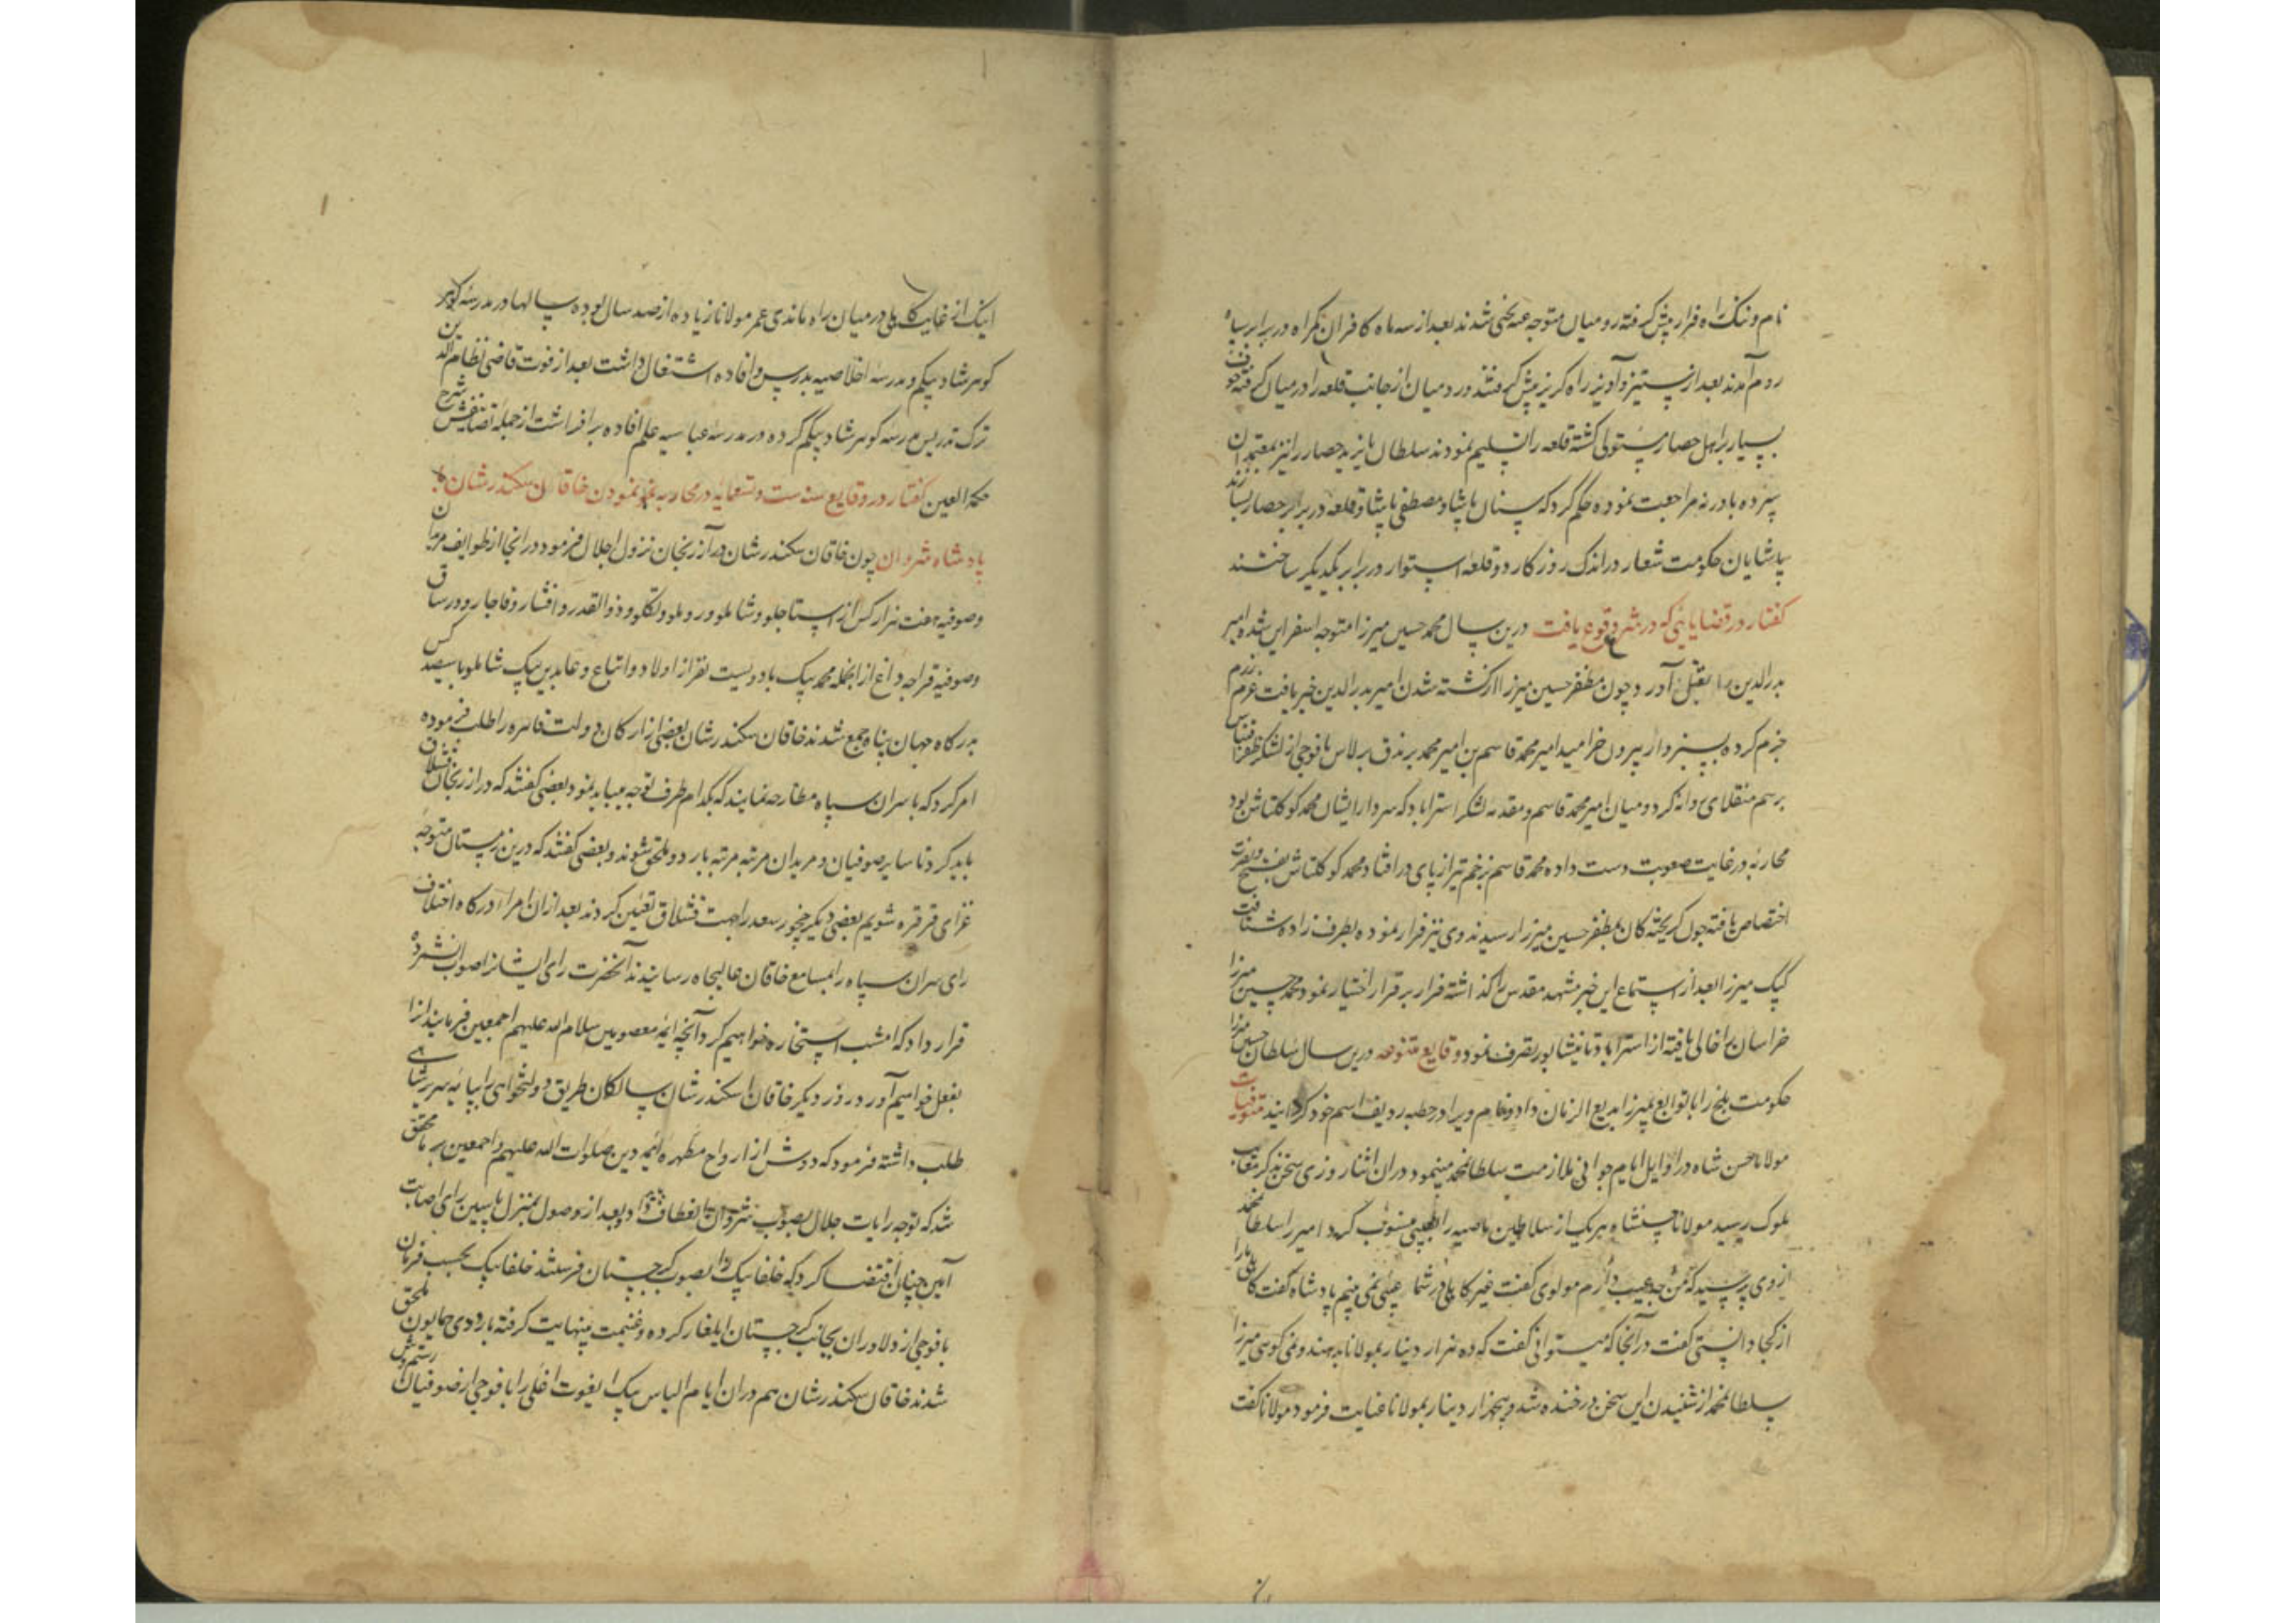 نام و ننگ راه فرار پیش گرفته رومیان متوجه عینه بختی شدند بعد از سه ماه کافران گمراه در برابر سپاه
روم آمدند بعد از ستیز و آویز راه گریز پیش گرفتند و رومیان از جانب قلعه را در میان گرفته خوف
بسیار بر اهل حصار مستولی گشته قلعه را تسلیم نمودند سلطان بایزید حصار را نیز بمعتمدان
سپرده بادرنه مراجعت نموده حکم کرد که سنان پاشا و مصطفی پاشا دو قلعه در برابر حصار بسازند
پاشایان حکومت شعار در اندک روزکار دو قلعه استوار در برابر یکدیگر ساختند
کفتار در قضایائی که در شرع وقوع یافت درین سال محمد حسین میرزا متوجه اسفراین شده امیر
بدرالدین را بقتل آورد و چون مظفر حسین میرزا از کشته شدن امیر بدرالدین خبر یافت عزم رزم
جزم کرده بسبزوار بیرون خرامید امیر محمد قاسم بن امیر محمد برندق برلاس با فوجی از لشکر ظفر اقتباس
برسم منقلای روانه کرد و میان امیر محمد قاسم و مقدمه لشکر استراباد که سردار ایشان محمد کوکلتاش بود
محاربه در غایت صعوبت دست داده محمد قاسم بزخم تیر از پای در افتاد و محمد کوکلتاش بفتح و نصرت
اختصاص یافته چون گریخته کان بمظفر حسین میرزا رسیدند وی نیز فرار نموده بطرف زاوه شتافت
کپک میرزا بعد از استماع این خبر مشهد مقدس را گذاشته فرار بر قرار اختیار نمود و محمد حسین میرزا
خراسان را خالی یافته از استراباد تا نیشاپور تصرف نمود وقایع متنوعه درین سال سلطان حسین میرزا
حکومت بلخ را با توابع بمیرزا بدیع الزمان داد و نام ویرا در خطبه ردیف اسم خود گردانید متوفیات
مولانا حسن شاه در اوایل ایام جوانی ملازمت سلطانمحمد مینمود در ان اثنا روزی سخن بذکر معایب
ملوک رسید مولانا حسنشاه هر یک از سلاطین ماضیه را بعیبی منسوب کرد امیرزا سلطانمحمد
از وی پرسید که من چه عیب دارم مولوی گفت غیر کاهلی در شما عیبی نمی بینم پادشاه گفت کاهلی مارا
از کجا دانستی گفت در آنجا که میتوانی گفت که ده هزار دینار بمولانا بدهند و نمی گوئی میرزا
سلطانمحمد از شنیدن این سخن در خنده شد و پنجهزار دینار بمولانا عنایت فرمود مولانا گفت
اینک از غایت کاهلی در میان راه ماندی عمر مولانا زیاده از صد سال بوده سالها در مدرسه گوهر
کوهرشاد بیکم و مدرسه اخلاصیه بدرس و افاده اشتغال داشت بعد از فوت قاضی نظام الدین
ترک تدریس مدرسه کوهرشاد بیکم کرده در مدرسه عباسیه علم افاده برافراشت از جمله تصانیفش شرح
حکمة العین کفتار در وقایع سنه ست و تسعمایه در محاربه نمودن خاقان سکندرشان با
پادشاه شروان چون خاقان سکندرشان در آذرنجان نزول اجلال فرمود در انجا از طوایف مریدان
و صوفیه هفت هزار کس از استاجلو و شاملو و روملو و تکلو و ذوالقدر و افشار و قاجار و ورساق
و صوفیه قراجه داغ از انجمله محمد بیک با دویست نفر از اولاد و اتباع و عابدین بیک شاملو با سیصد کس
بدرکاه جهان پناه جمع شدند خاقان سکندرشان بعضی از ارکان دولت قاهره را طلب فرموده
امر کرد که با سران سپاه مطارحه نمایند که بکدام طرف توجه میباید نمود بعضی گفتند که در ازرنجان قشلاق
باید کرد تا سایر صوفیان و مریدان مرتبه مرتبه باردو ملحق شوند و بعضی گفتند که درین زمستان متوجه
غزای قرقره شویم بعضی دیگر چخور سعد را جهت قشلاق تعیین کردند بعد از ان امرا درکاه اختلاف
رای سران سپاه را بمسامع خاقان عالیجاه رسانیدند آنحضرت رای ایشانرا صواب نشمرده
قرار داد که امشب استخاره خواهیم کرد آنچه ائمه معصومین سلام الله علیهم اجمعین فرمایند انرا
بفعل خواهیم آورد روز دیگر خاقان اسکندرشان سالکان طریق دولتخواهی را بپایه سریر شاهی
طلب داشته فرمود که دوش از ارواح مطهره ائمه دین صلوات الله علیهم اجمعین بر ما محقق
شد که توجه رایات جلال بصوب شروان انعطاف داد و بعد از وصول بمنزل باسین رای اصابت
آیین چنان اقتضا کرد که خلفا بیک را بصوب گرجستان فرستد خلفا بیک بحسب فرمان
با فوجی از دلاوران بجانب گرجستان ایلغار کرده و غنیمت بینهایت گرفته باردوی همایون ملحق
شدند خاقان سکندرشان هم در ان ایام الیاس بیک ایغوت اغلی را با فوجی از صوفیان رستم وش